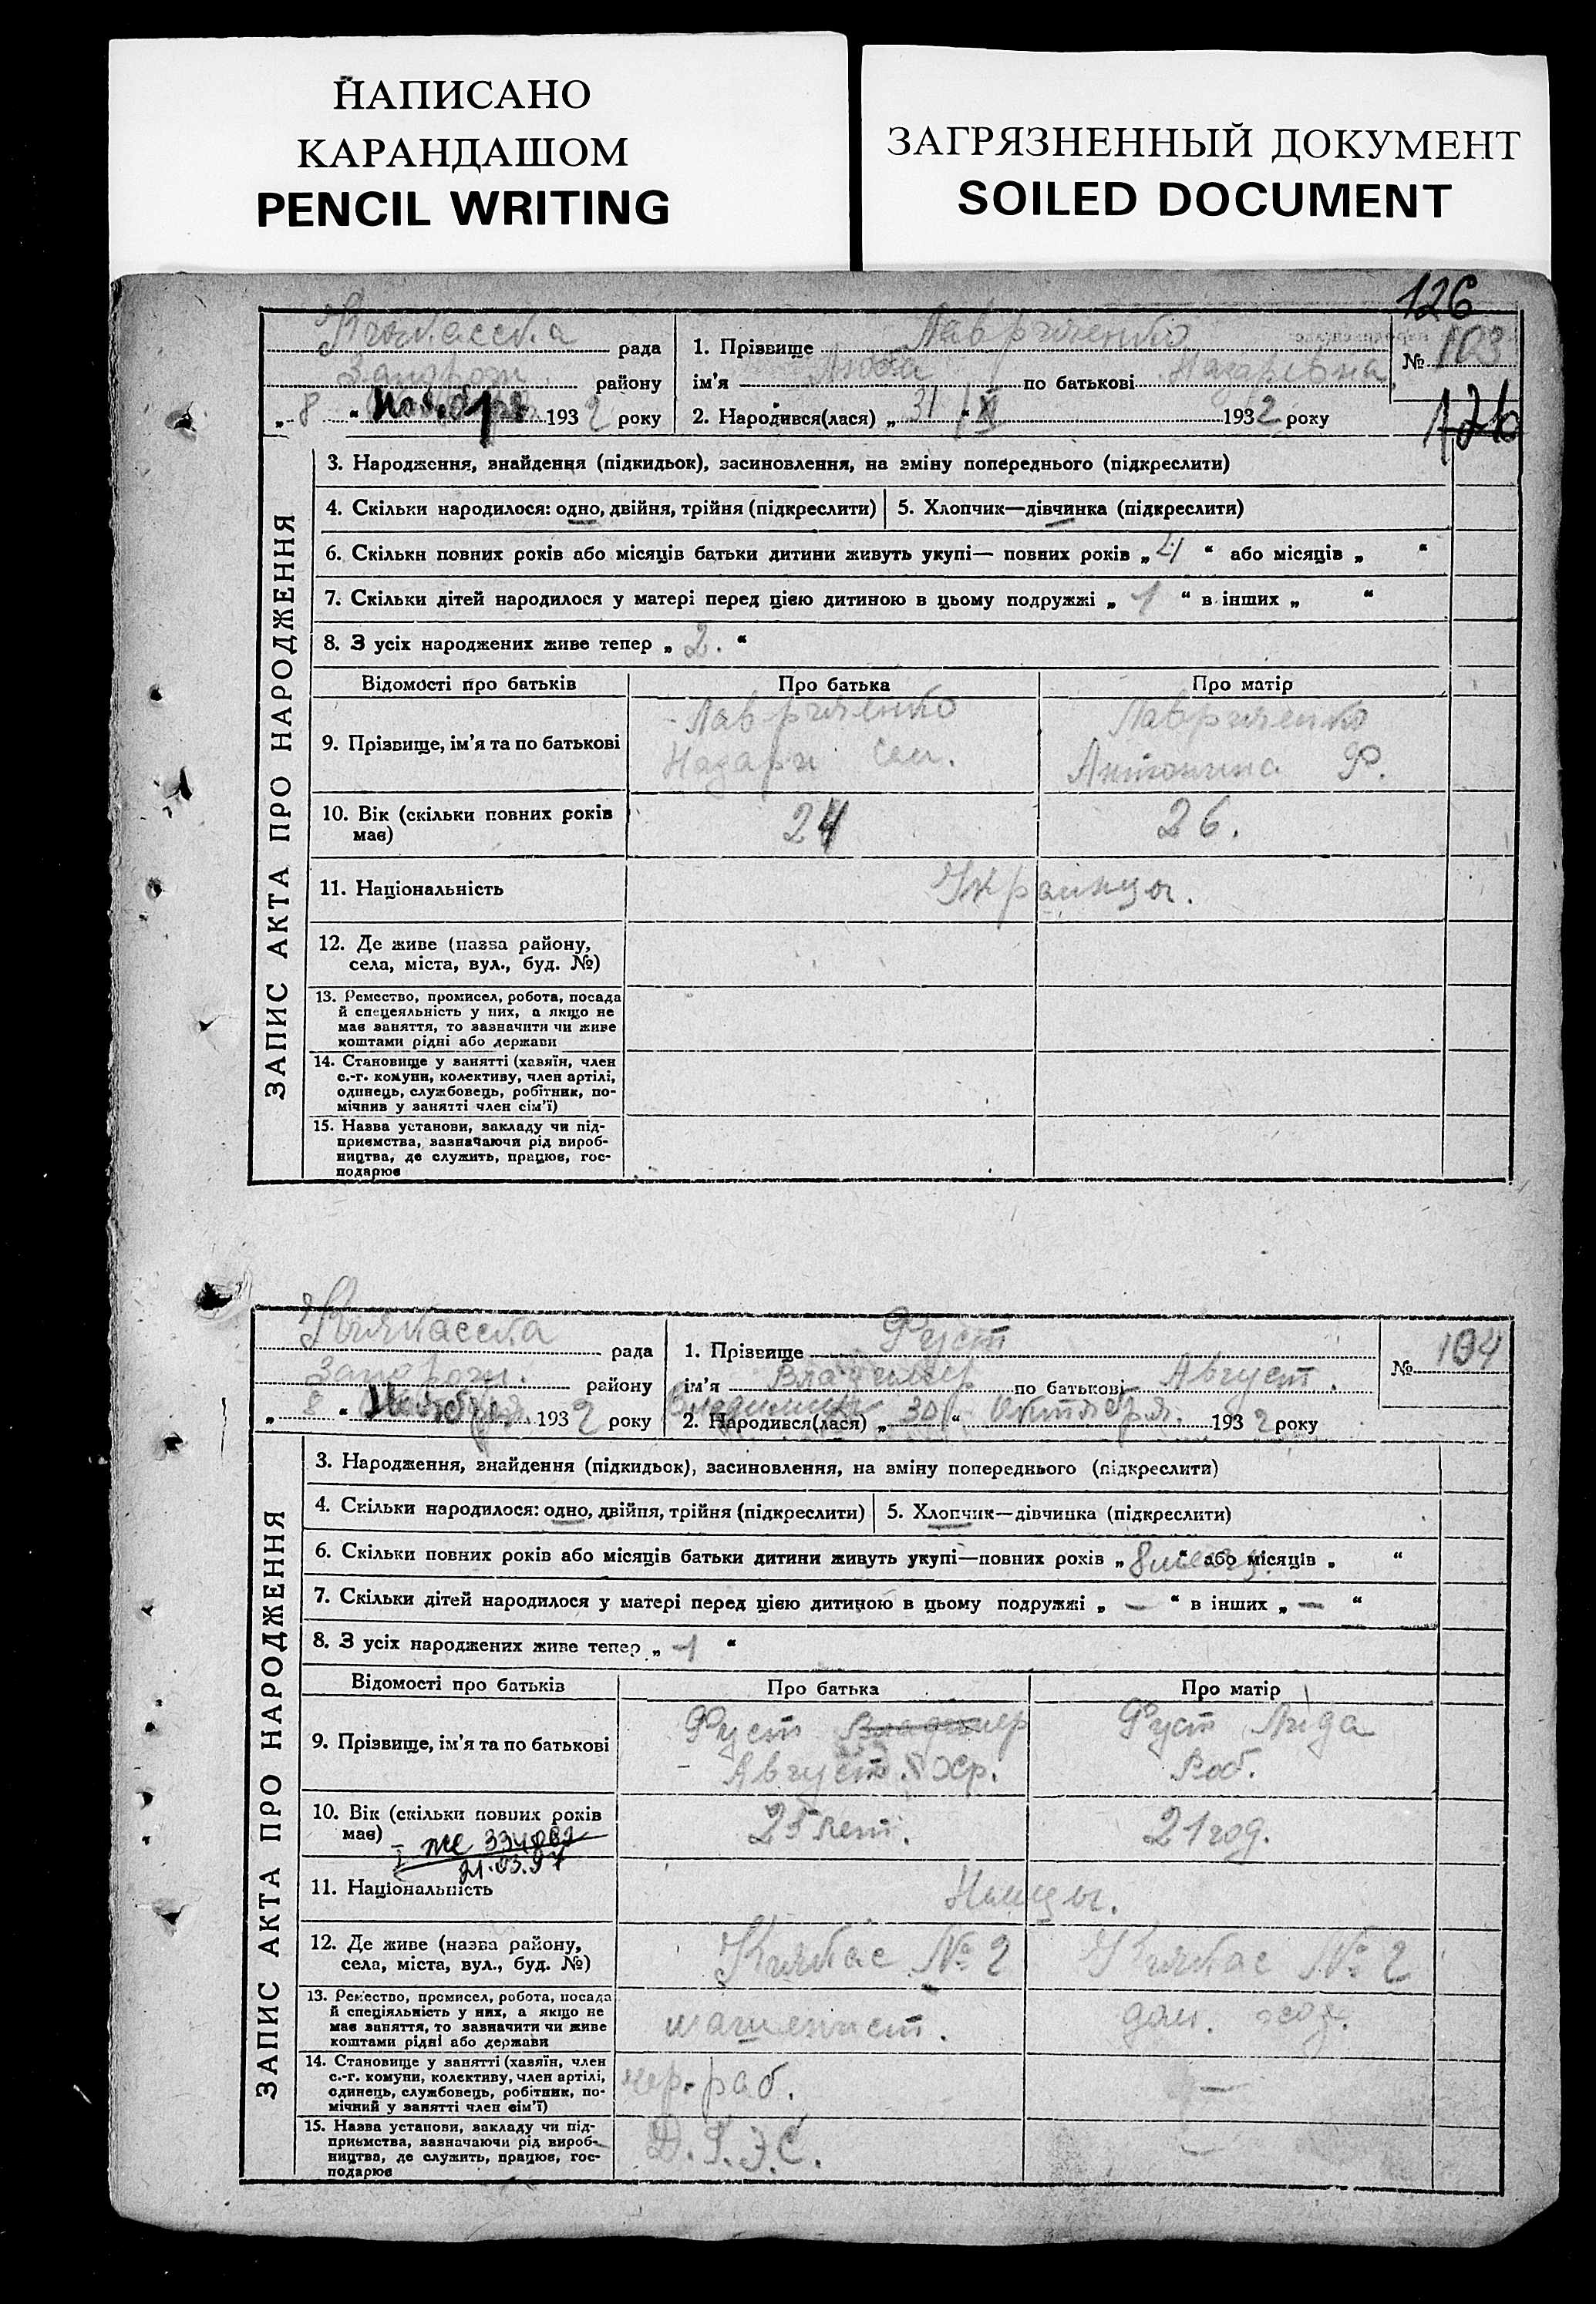 НАПИСАНО
КАРАНДАШОМ
PENCIL WRITING
ЗАГРЯЗНЕННЫЙ ДОКУМЕНТ
SOILED DOCUMENT
126
рада
Запорож. району
„ 8 “ Ноября 1932 року
1. Прізвище
ім'я Люба по батькові Назарівна
2. Народився(лася) „ 31 “ 1932 року
№ 103
126
ЗАПИС АКТА ПРО НАРОДЖЕННЯ
3. Народження, знайдення (підкидьок), засиновлення, на зміну попереднього (підкреслити)
4. Скільки народилося: одно, двійня, трійня (підкреслити) 5. Хлопчик—дівчинка (підкреслити)
6. Скільки повних років або місяців батьки дитини живуть укупі— повних років „ 4 “ або місяців „ “
7. Скільки дітей народилося у матері перед цією дитиною в цьому подружжі „ 1 “ в інших „ “
8. З усіх народжених живе тепер „ 2. “
Відомості про батьків Про батька Про матір
9. Прізвище, ім'я та по батькові
Назари Сем. Антонина Ф.
10. Вік (скільки повних років має) 24 26.
11. Національність Украинцы.
12. Де живе (назва району,
села, міста, вул., буд. №)
13. Ремество, промисел, робота, посада
й спецеяльність у них, а якщо не
має заняття, то зазначити чи живе
коштами рідні або держави
14. Становище у занятті (хазяїн, член
с.-г. комуни, колективу, член артілі,
одинець, службовець, робітник, по-
мічнив у занятті член сім'ї)
15. Назва установи, закладу чи під-
приємства, зазначаючи рід вироб-
ництва, де служить, працює, гос-
подарює
рада
Запорож. району
„ 8 “ 1932 року
1. Прізвище Фуст
ім'я Владимер по батькові Август.
Владимир
2. Народився(лася) „ 30 “ Октября. 1932 року
№ 104
ЗАПИС АКТА ПРО НАРОДЖЕННЯ
3. Народження, знайдення (підкидьок), засиновлення, на зміну попереднього (підкреслити)
4. Скільки народилося: одно, двійня, трійня (підкреслити) 5. Хлопчик—дівчинка (підкреслити)
6. Скільки повних років або місяців батьки дитини живуть укупі—повних років „ 8 “ або місяців „ “
7. Скільки дітей народилося у матері перед цією дитиною в цьому подружжі „ — “ в інших „ — “
8. З усіх народжених живе тепер „ 1 “
Відомості про батьків Про батька Про матір
9. Прізвище, ім'я та по батькові Фуст Владимер Фуст Лида
Август. Роб.
10. Вік (скільки повних років
має) 25 лет. 21 год.
21.03.97
11. Національність Немцы.
12. Де живе (назва району,
села, міста, вул., буд. №) Кичкас № 2 Кичкас № 2
13. Ремество, промисел, робота, посада
й спеціяльність у них, а якщо не
має заняття, то зазначити чи живе
коштами рідні або держави
машенист. дом. хоз.
14. Становище у занятті (хазяїн, член
с.-г. комуни, колективу, член артілі,
одинець, службовець, робітник, по-
мічний у занятті член сім'ї)
чер. раб. —
15. Назва установи, закладу чи під-
приємства, зазначаючи рід вироб-
ництва, де служить, працює, гос-
подарює
Д.Г.Э.С. —